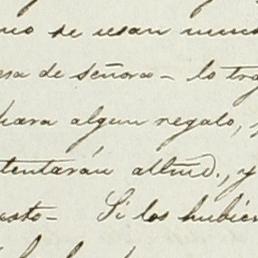 no se usan nunca
esa de señora - lo tra
hara algun regalo,
tentarán allmd., y
esto - Si los hubier